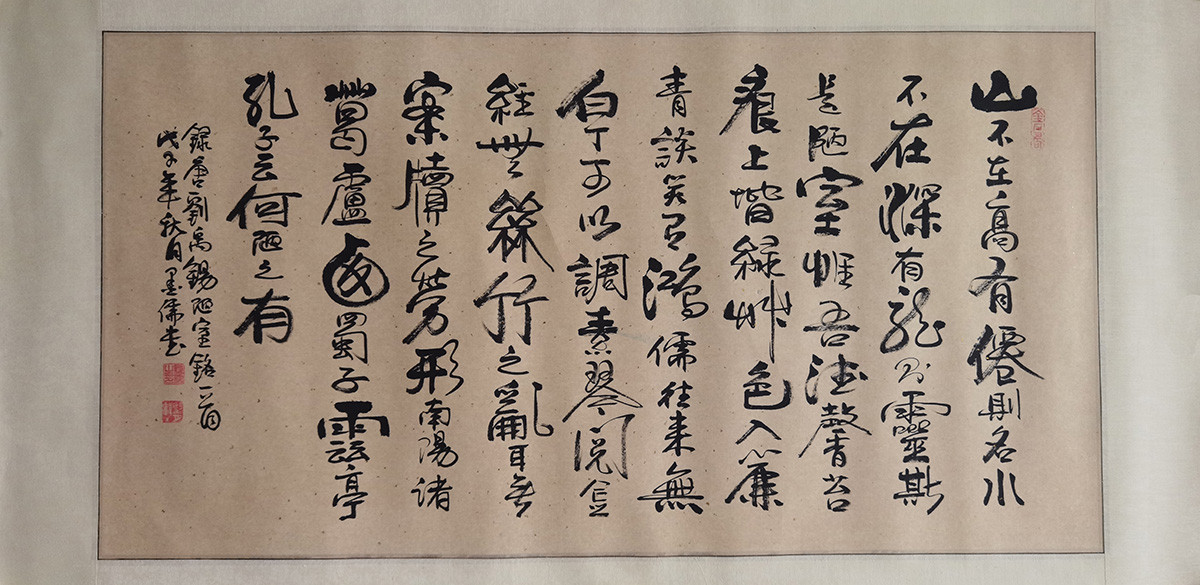 山不在高有僊則名水
不在深有龙則靈斯
是陋室惟吾德馨苔
痕上堦緑艸色入簾
青談笑有鴻儒往来無
白丁可以調素琴閲金
經無絲竹之亂耳無
案牘之勞形南陽諸
葛廬西蜀子雲亭
孔子云何陋之有
録唐劉禹錫陋室銘一首
戊子年秋月墨儒書